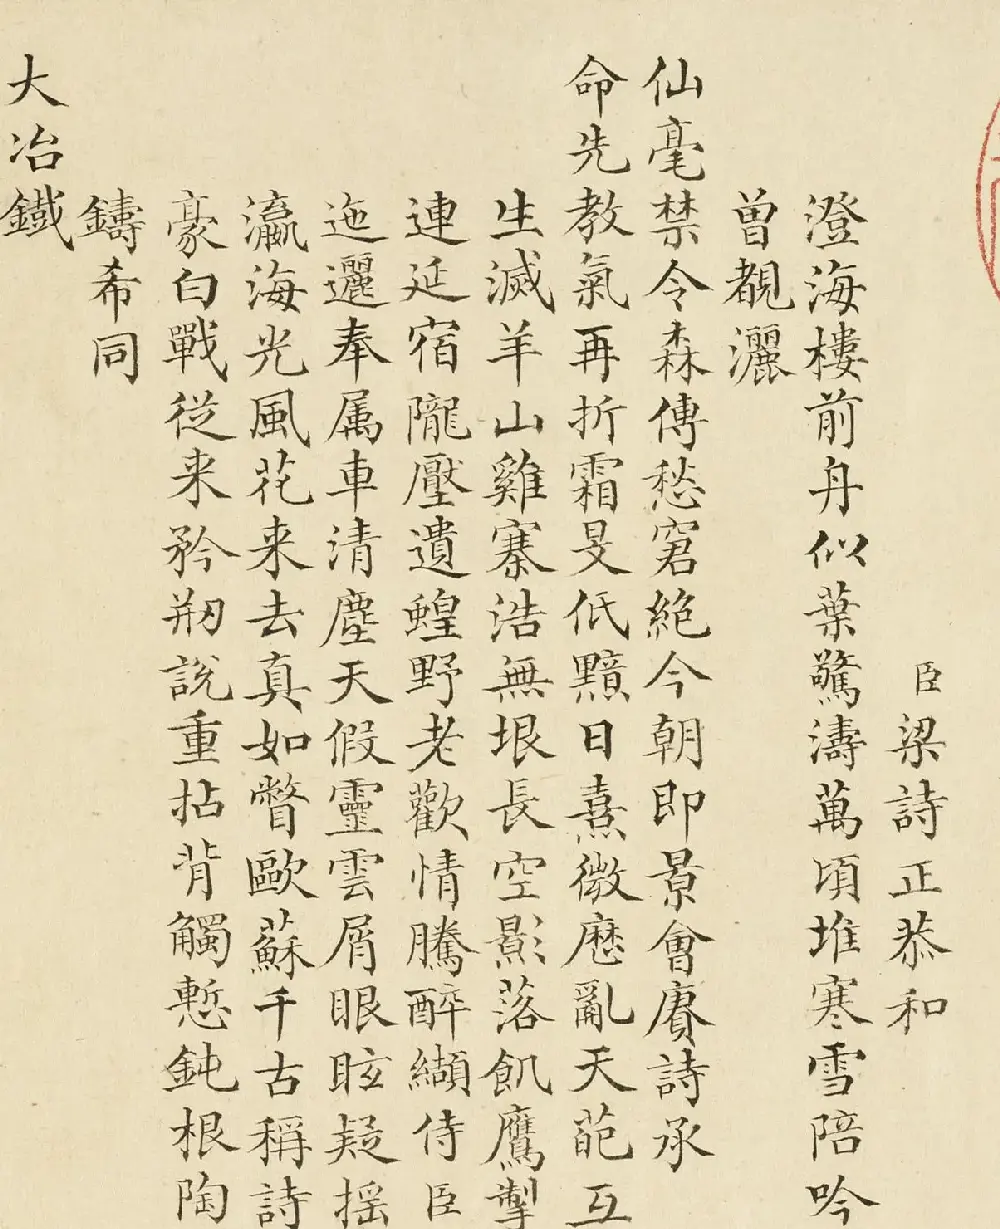 臣梁詩正恭和
澄海樓前舟似葉驚濤萬頃堆寒雪陪吟
曾覩灑
仙毫禁令森傳愁窘絶今朝即景會賡詩承
命先教氣再折霜旻低黯日熹微歴亂天葩互
生滅羊山雞寨浩無垠長空影落飢鷹掣
連延宿隴壓遺蝗野老歡情騰醉纈侍臣
迤邐奉属車清塵天假靈雲屑眼眩疑摇
瀛海光風花来去真如瞥歐蘇千古稱詩
豪白戰從来矜刱說重拈背觸慙鈍根陶
鑄希同
大冶鐵